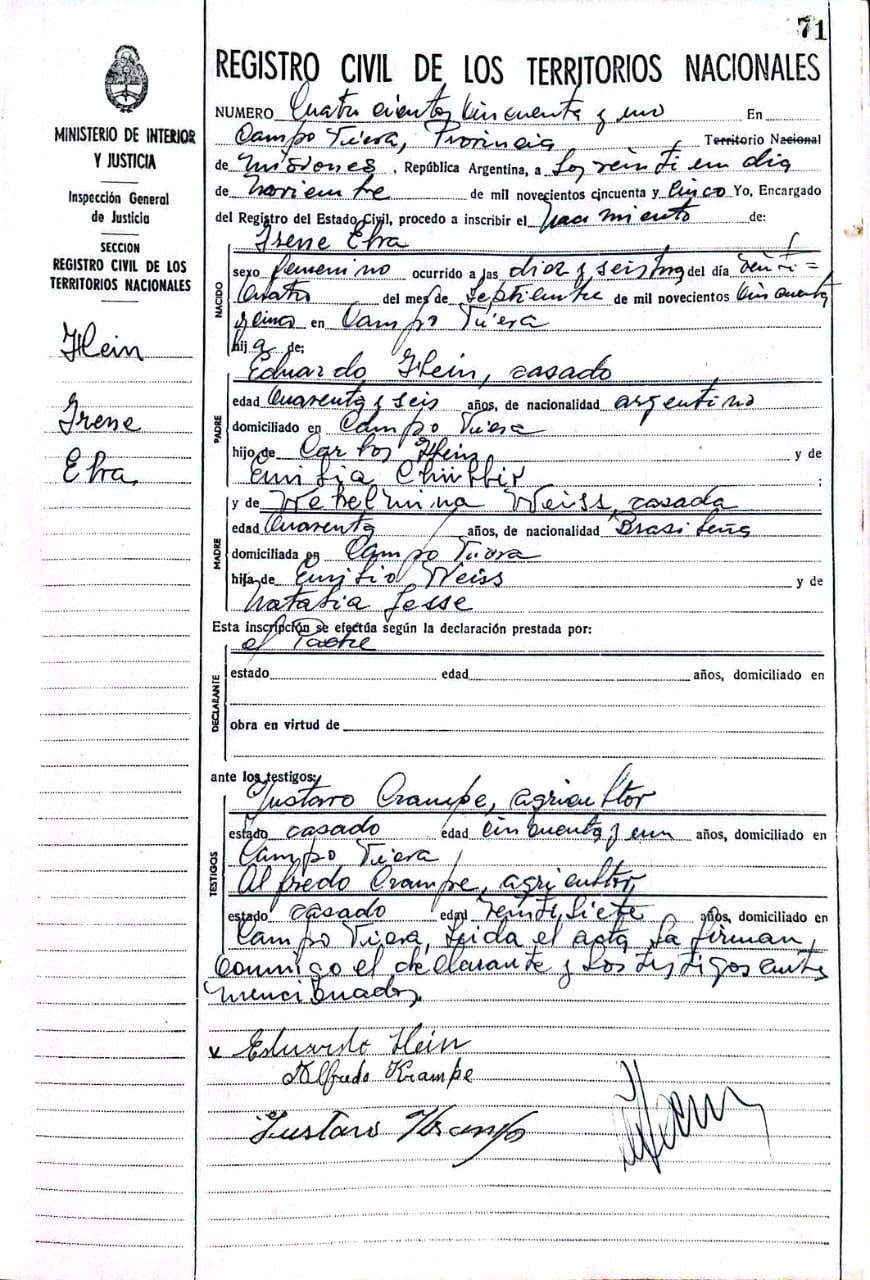 71
REGISTRO CIVIL DE LOS TERRITORIOS NACIONALES
MINISTERIO DE INTERIOR
Y JUSTICIA
Inspección General
de Justicia
SECCION
REGISTRO CIVIL DE LOS
TERRITORIOS NACIONALES
Hein
Irene
Elva
NUMERO Cuatro cientos cincuenta y uno En
Campo Viera, Provincia Territorio Nacional
de Misiones, República Argentina, a los veinti un dia
de noviembre de mil novecientos cincuenta y cinco Yo, Encargado
del Registro del Estado Civil, procedo a inscribir el nacimiento de:
Irene Elva
NACIDO
sexo femenino ocurrido a las diez y seis hs del día veinti=
cuatro del mes de septiembre de mil novecientos cincuenta
y cinco en Campo Viera
hija de:
PADRE
Eduardo Hein, casado
edad cuarenta y seis años, de nacionalidad argentino
domiciliado en Campo Viera
hijo de Carlos Hein y de
Emilia ;
MADRE
y de Weiss, casada
edad cuarenta años, de nacionalidad Brasileña
domiciliada en Campo Viera
hija de Emilio Weiss y de
Natalia Jesse
Esta inscripción se efectúa según la declaración prestada por:
el Padre
DECLARANTE
estado edad años, domiciliado en
obra en virtud de
ante los testigos:
TESTIGOS
Gustavo Crampe, agricultor
estado casado edad cincuenta y un años, domiciliado en
Campo Viera
Alfredo Crampe, agricultor,
estado casado edad veinti siete años, domiciliado en
Campo Viera, Leida el acta la firman
conmigo el declarante y los testigos antes
mencionados.
Eduardo Hein
Alfredo Krampe
Gustavo Krampe